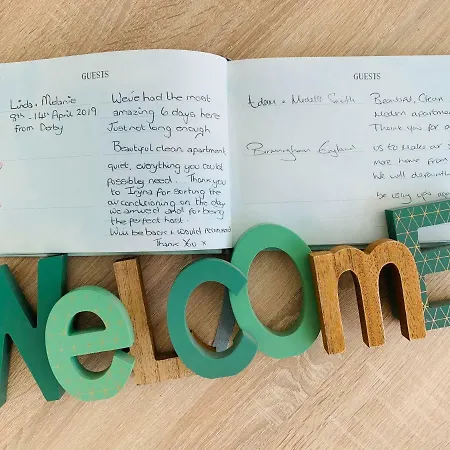 GUESTS
Linda & Melanie
8th - 14th April 2019
from Derby
We've had the most
amazing 6 days here
Just not long enough
Beautiful clean apartment
quiet, everything you could
possibley need. Thank you
to Iryna for sorting the
air conditioning on the day
we arrived and for being
the perfect host.
Will be back & would recommend
Thank You x
GUESTS
Adam &
Birmingham England
Beautiful, Clean
Modern apartment
Thank you for a
us to make our s
more home from
We will
be using you aga
WeLcome